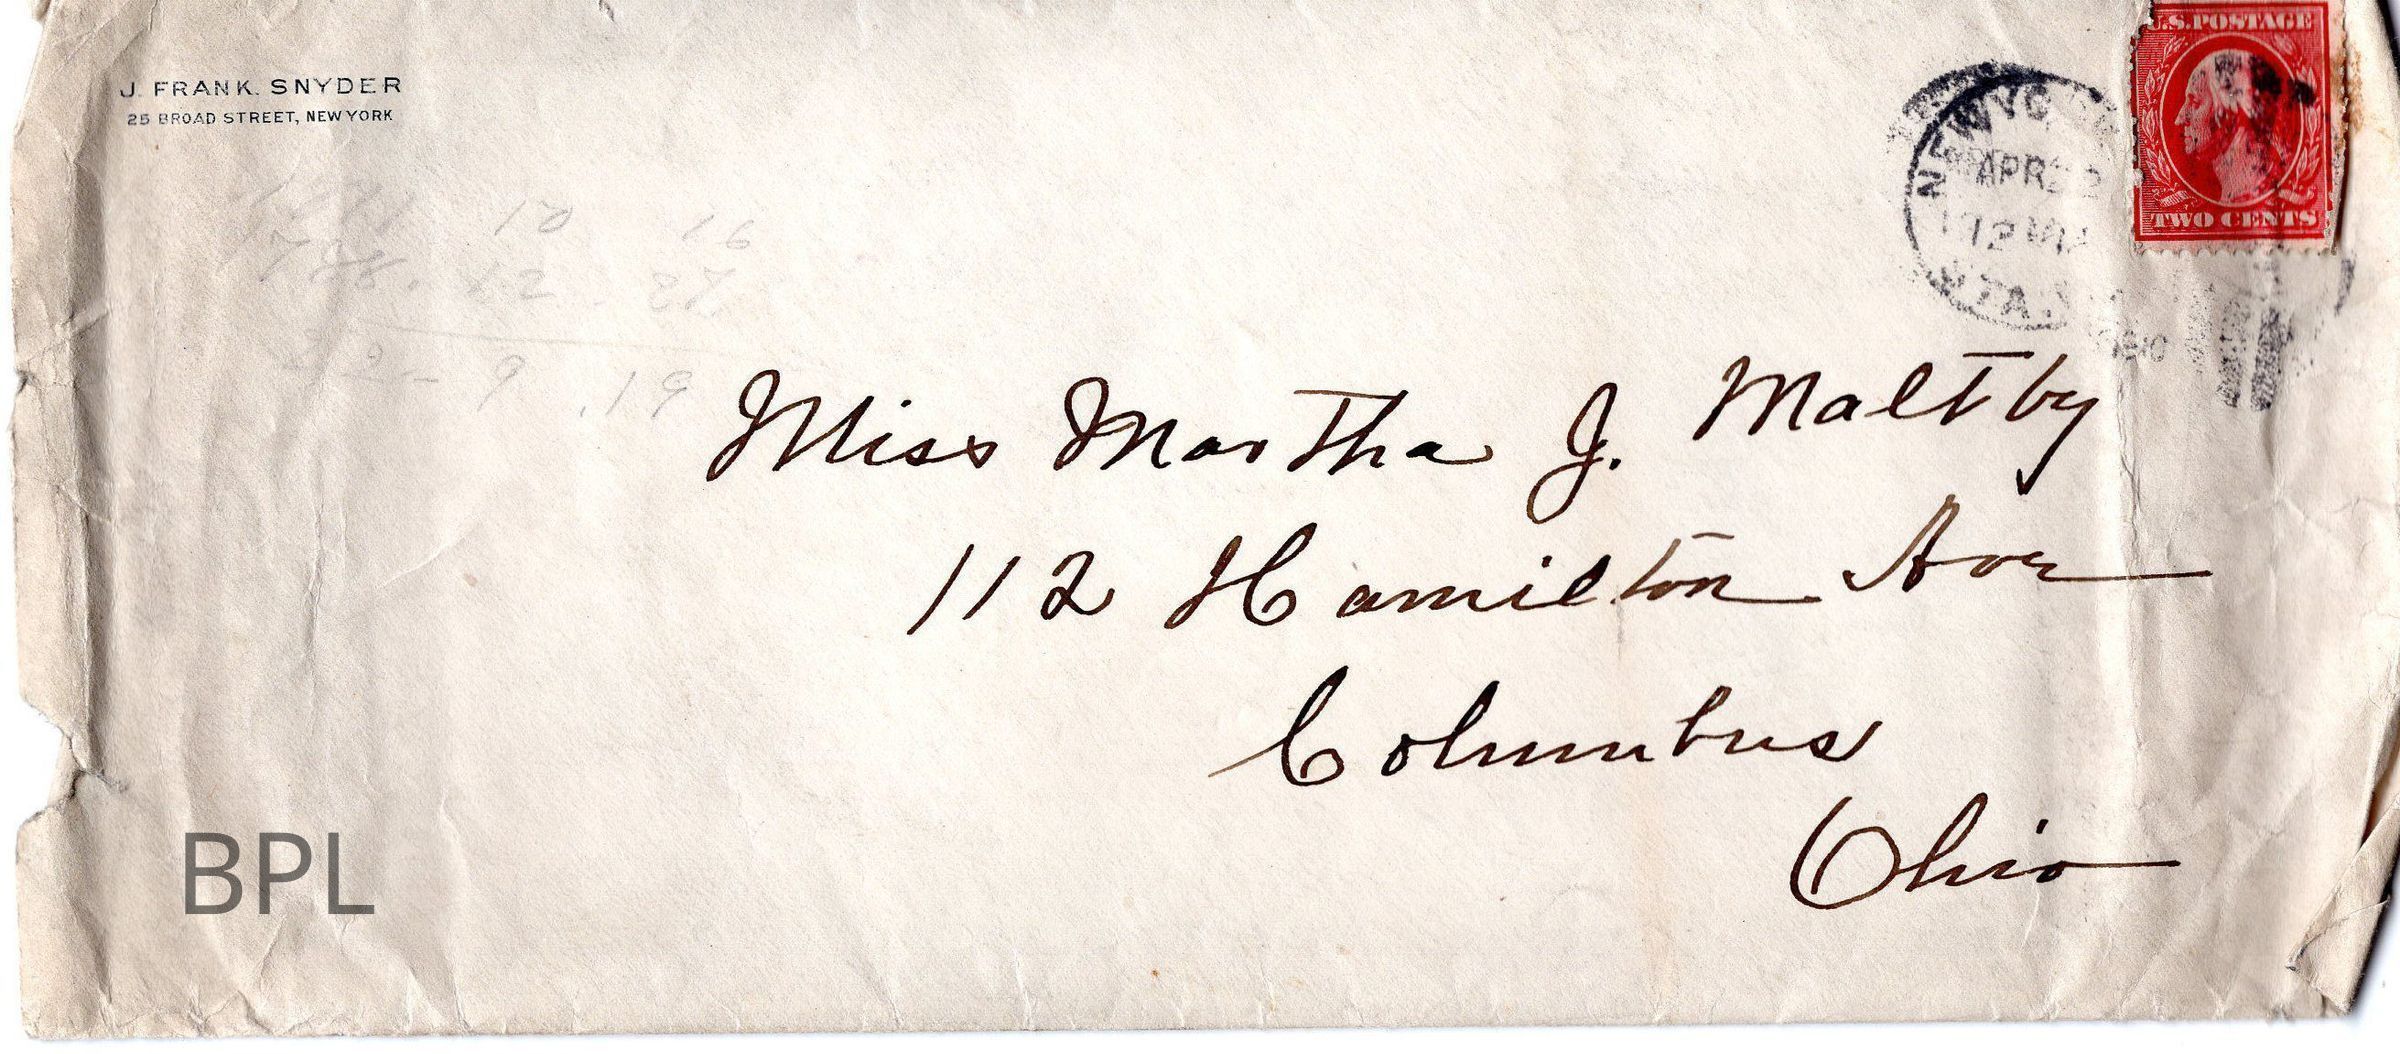 J. FRANK. SNYDER
25 BROAD STREET, NEW YORK
U.S. POSTAGE
TWO CENTS
NEW YORK
APR 22
12 M
STA.
10 16
22 27
9 .19
Miss Martha J. Maltby
112 Hamilton Ave
Columbus
Ohio
BPL